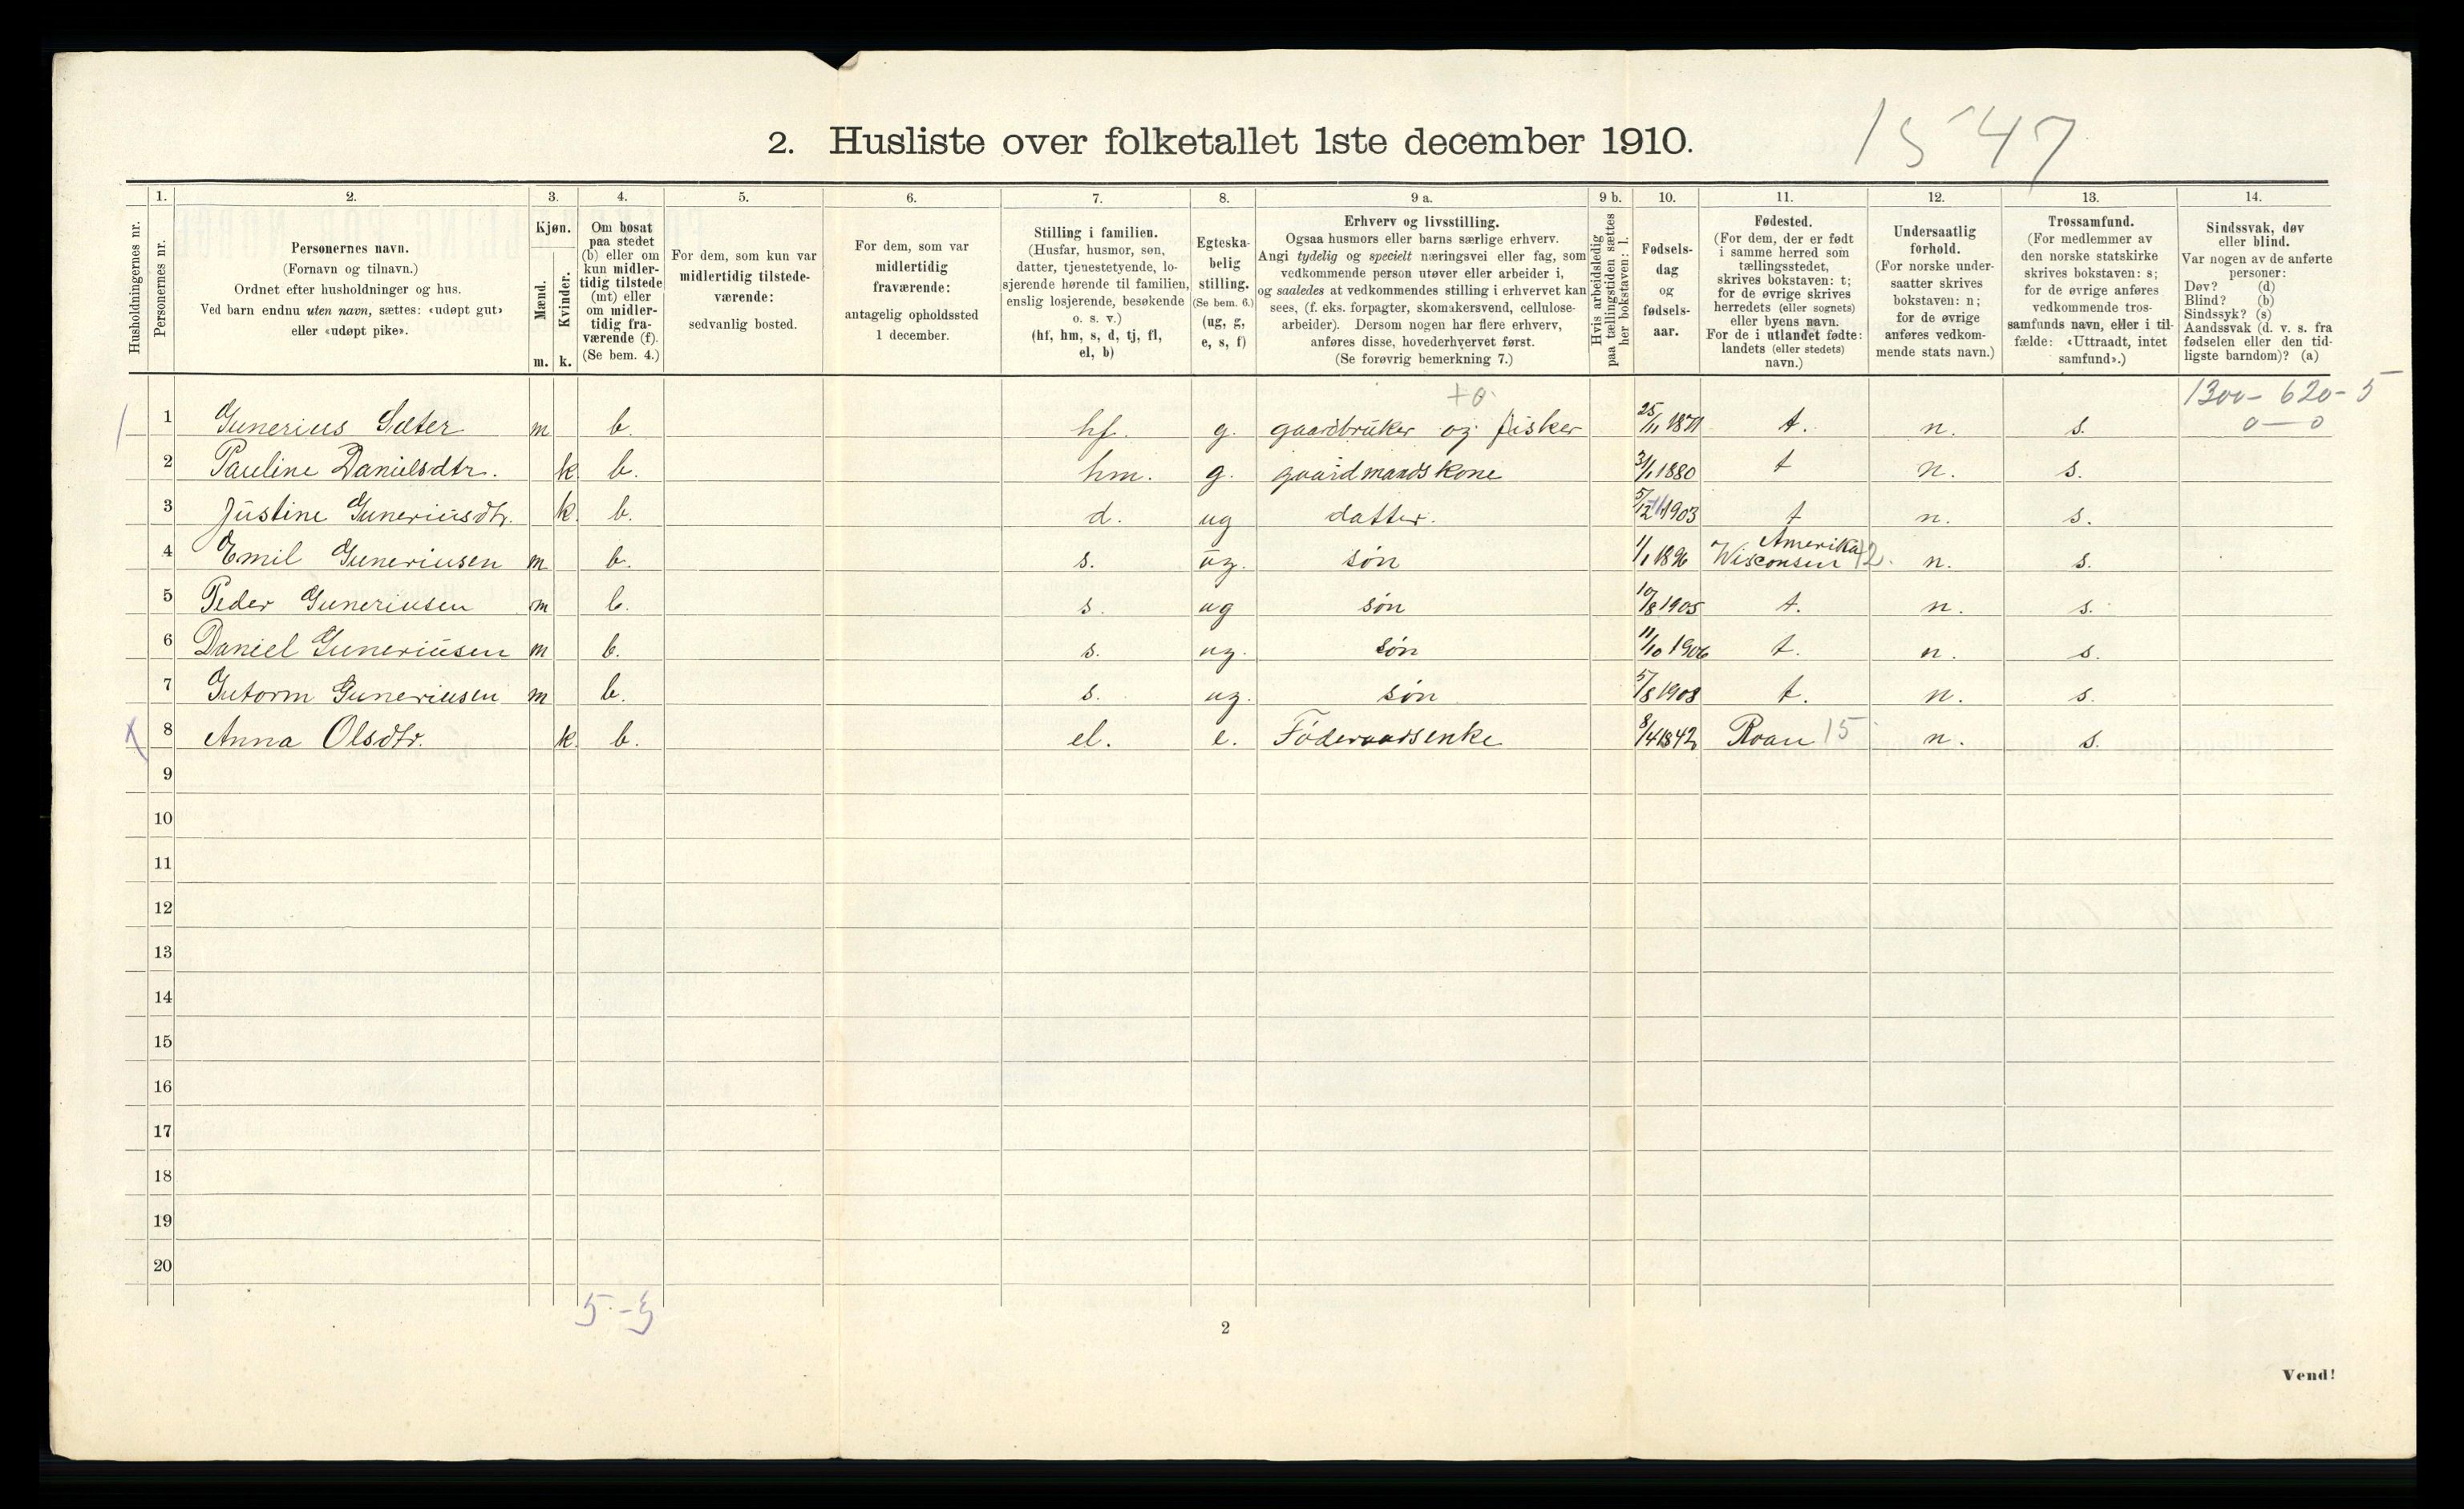 1547
2. Husliste over folketallet 1ste december 1910.
Husholdningernes nr.
1.
Personernes nr.
2.
Personernes navn.
(Fornavn og tilnavn.)
Ordnet efter husholdninger og hus.
Ved barn endnu uten navn, sættes: «udøpt gut»
eller «udøpt pike».
3.
Kjøn.
Mænd.
Kvinder.
m. k.
4.
Om bosat
paa stedet
(b) eller om
kun midler-
tidig tilstede
(mt) eller
om midler-
tidig fra-
værende (f).
(Se bem. 4.)
5.
For dem, som kun var
midlertidig tilstede-
værende:
sedvanlig bosted.
6.
For dem, som var
midlertidig
fraværende:
antagelig opholdssted
1 december.
7.
Stilling i familien.
(Husfar, husmor, søn,
datter, tjenestetyende, lo-
sjerende hørende til familien,
enslig losjerende, besøkende
o. s. v.)
(hf, hm, s, d, tj, fl,
el, b)
8.
Egteska-
belig
stilling.
(Se bem. 6.)
(ug, g,
e, s, f)
9 a.
Erhverv og livsstilling.
Ogsaa husmors eller barns særlige erhverv.
Angi tydelig og specielt næringsvei eller fag, som
vedkommende person utøver eller arbeider i,
og saaledes at vedkommendes stilling i erhvervet kan
sees, (f. eks. forpagter, skomakersvend, cellulose-
arbeider). Dersom nogen har flere erhverv,
anføres disse, hovederhvervet først.
(Se forøvrig bemerkning 7.)
9 b.
Hvis arbeidsledig
paa tællingstiden sættes
her bokstaven: l.
10.
Fødsels-
dag
og
fødsels-
aar.
11.
Fødested.
(For dem, der er født
i samme herred som
tællingsstedet,
skrives bokstaven: t;
for de øvrige skrives
herredets (eller sognets)
eller byens navn.
For de i utlandet fødte:
landets (eller stedets)
navn.)
12.
Undersaatlig
forhold.
(For norske under-
saatter skrives
bokstaven: n;
for de øvrige
anføres vedkom-
mende stats navn.)
13.
Trossamfund.
(For medlemmer av
den norske statskirke
skrives bokstaven: s;
for de øvrige anføres
vedkommende tros-
samfunds navn, eller i til-
fælde: «Uttraadt, intet
samfund».)
14.
Sindssvak, døv
eller blind.
Var nogen av de anførte
personer:
Døv? (d)
Blind? (b)
Sindssyk? (s)
Aandssvak (d. v. s. fra
fødselen eller den tid-
ligste barndom)? (a)
+0.
1300 - 620 - 5
0 — 0
1 Gunerius Sæter m b. hf. g. gaardbruker og fisker 25/1 1871 t. n. s.
2 Pauline Danielsdtr. k b. hm. g. gaardmandskone 31/1 1880 t n. s.
3 Justine Guneriusdtr. k. b. d. ug datter. 5/12 1903 t n. s.
4 Emil Guneriusen m b. s. ug. søn 1/1 1896 Amerika Wisconsin 12. n. s.
5 Peder Guneriusen m b. s. ug søn 10/8 1905 t. n. s.
6 Daniel Guneriusen m b. s. ug. søn 11/10 1906 t. n. s.
7 Gutorm Guneriusen m b. s. ug. søn 5/8 1908 t. n. s.
x 8 Anna Olsdtr. k. b. el. e. Føderaadsenke 8/4 1842 Roan 15 n. s.
9
10
11
12
13
14
15
16
17
18
19
20
5 - 3
2
Vend!